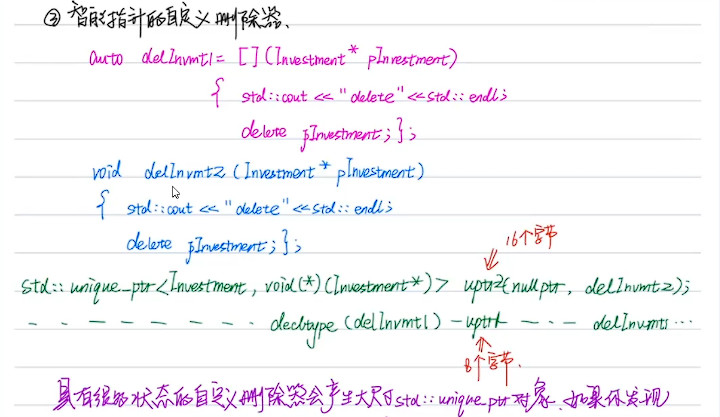 ② 智能指针的自定义删除器.
auto delInvmt1 = [](Investment* pInvestment)
{ std::cout << "delete" << std::endl;
delete pInvestment; };
void delInvmt2 (Investment* pInvestment)
{ std::cout << "delete" << std::endl;
delete pInvestment; };
16个字节
std::unique_ptr<Investment, void(*)(Investment*)> uptr2(nullptr, delInvmt2);
- - - - - - - - decltype (delInvmt1) - uptr1 - - - delInvmt1 ...
8个字节.
具有很多状态的自定义删除器会产生大尺寸std::unique_ptr对象. 如果你发现